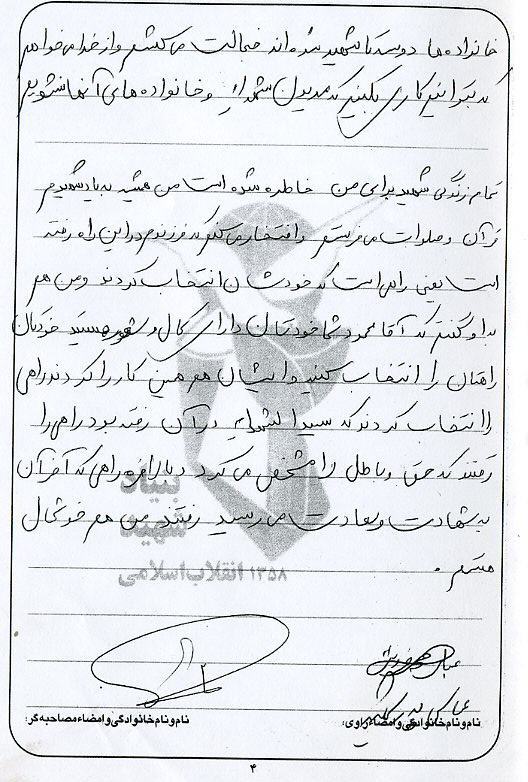 خانواده ها دوستانشان شهید شده اند خجالت می کشم و از خدا می خواهم
که بتوانیم کاری بکنیم که مدیون شهدا و خانواده های آنها نشویم
تمام زندگی شهید برای من خاطره شده است من همیشه به یاد شهیدم
قرآن و صلوات می فرستم و افتخار می کنم که فرزندم در این راه رفته
است یعنی راهی است که خودشان انتخاب کردند و من هم
به او گفتم که آقا محمود شما خودتان دارای کمال و شعور هستید خودتان
راهتان را انتخاب کنید و ایشان هم همین کار را کردند راهی
را انتخاب کردند که سید الشهدا در آن رفته بود راهی را
رفتند که حق و باطل را مشخص می کرد و بالاخره راهی که آخر آن
به شهادت و سعادت می رسید رفتند من هم خوشحال
هستم .
بنیاد
شهید
۱۳۵۸ انقلاب اسلامی
نام و نام خانوادگی و امضاء راوی: نام و نام خانوادگی و امضاء مصاحبه گر:
۴